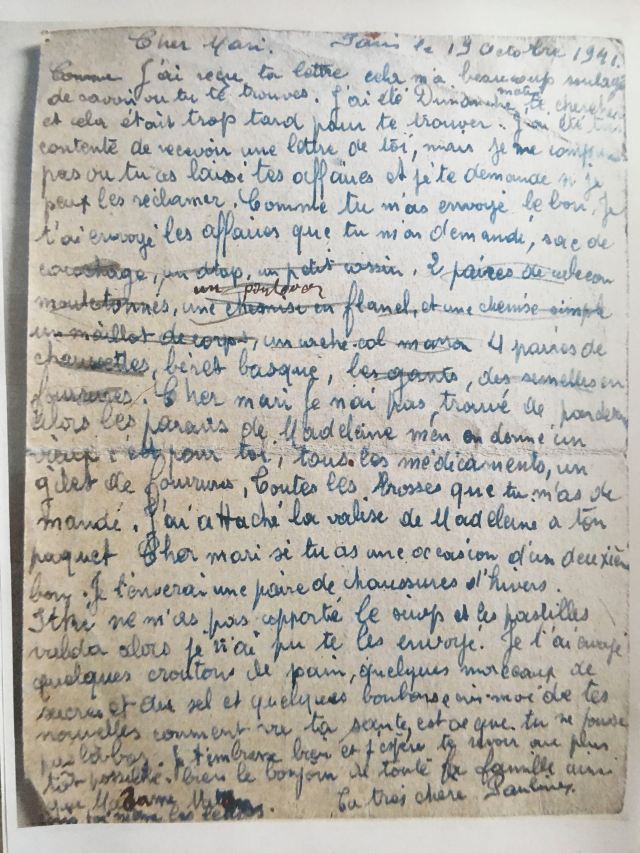 Cher Mari. Paris le 19 Octobre 1941.
Comme J'ai reçue ta lettre cela m'a beaucoup soulagé
de savoir ou tu te trouves. J'ai été Dimanche matin te chercher
et cela était trop tard pour te trouver. J'ai été très
contente de recevoir une lettre de toi, mais je ne comprend
pas ou tu as laissé tes affaires et je te demande si je
peux les réclamer. Comme tu m'as envoyé le bon. Je
t'ai envoyé les affaires que tu m'as demandé, sac de
couchage, un drap, un petit cossin. 2 paires de calecon
moutetonnés, une chemise en flanel, et une chemise simple
un poulover
un maillot de corps, un cache-col marron 4 paires de
chaussettes, béret basque, les gants, des semelles en
fourrures. Cher mari je n'ai pas trouvé de
alors les parents de Madeleine m'en on donné un
vieux c'est pour toi, tous les médicaments, un
gilet de fourrures, toutes les brosses que tu m'as de
mandé. J'ai attaché la valise de Madeleine a ton
paquet Cher mari si tu as une occasion d'un deuxièm
bon. Je t'enverai une paire de chaussures d'hivers.
ne m'as pas apporté le sirop et les pastilles
valda alors je n'ai pu te les envoyé. Je t'ai envoyé
quelques croutons de pain, quelques morceaux de
sucres et du sel et quelques bonbons écris-moi de tes
nouvelles comment va ta santé, est ce que tu ne tousse
pas la bas. Je t'embrasse bien et j'espère te revoir au plus
tôt possible. bien le bonjour de toute la famille ainsi
que Madame
Ta trois chère Pauline.
les lettres.